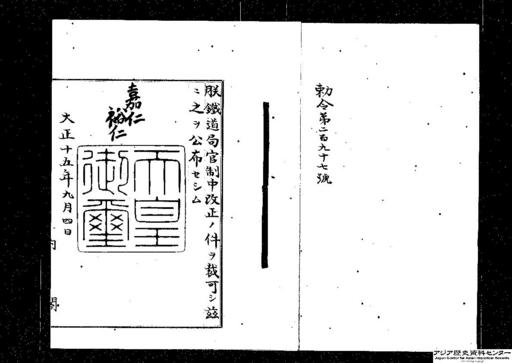 勅令第二百九十七號
朕鐵道局官制中改正ノ件ヲ裁可シ茲
ニ之ヲ公布セシム
嘉仁
裕仁
天皇
御璽
大正十五年九月四日
内閣
アジア歴史資料センター
Japan Center for Asian Historical Records